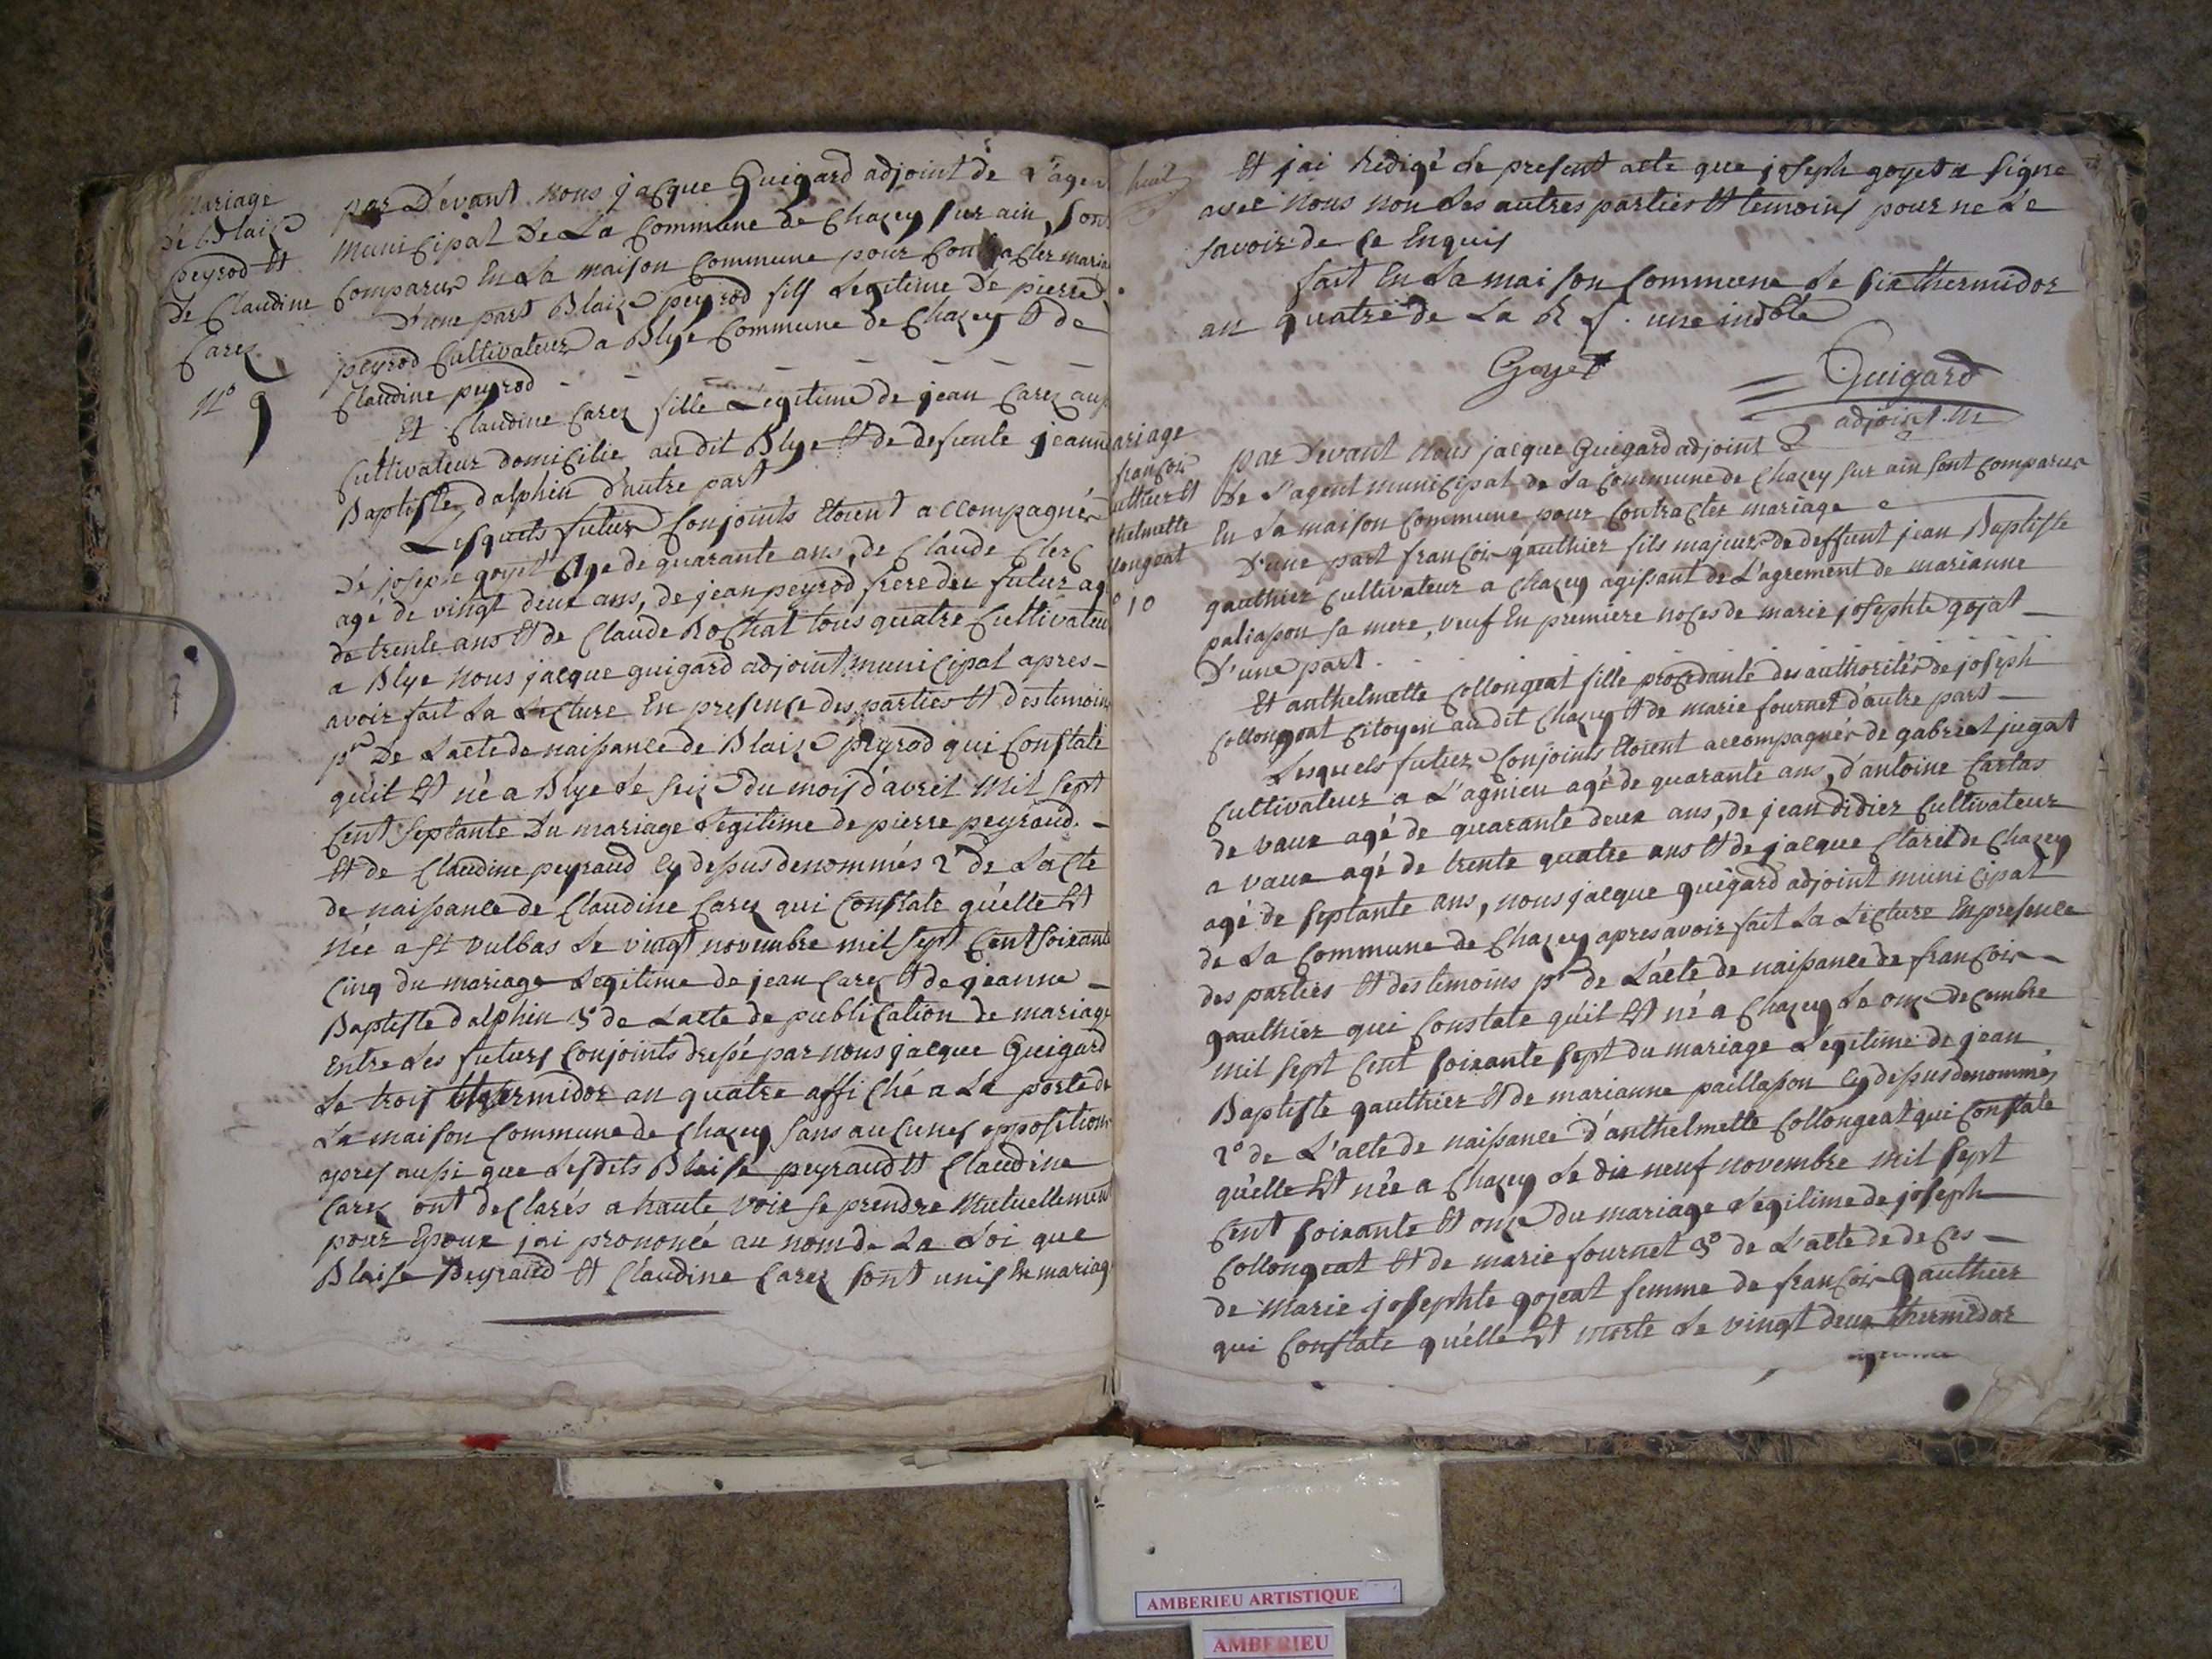 Mariage
de Blaize
peyrod et
de Claudine
Carez
N° 9
par Devant nous jacque Guigard adjoint de L'agent
municipal De La Commune de Chazey sur ain, sont
Comparus En La maison Commune pour Contracter mariage
D'une part Blaize peyrod fils Legitime de pierre
peyrod Cultivateur a Blye Commune de Chazey et de
Claudine peyrod
Et Claudine Carez fille Legitime de jean Carez aussi
Cultivateur domicilié au dit Blye et de defunte jeanne
Baptiste dalphin d'autre part
Lesquels futurs Conjoints étoient accompagnés
De joseph goyet Agé de quarante ans, de Claude Clerc
agé de vingt deux ans, de jean peyrod frere du futur agé
de trente ans et de Claude Rochat tous quatre Cultivateurs
a Blye Nous jacque guigard adjoint municipal apres
avoir fait La Lecture En presence des parties et des temoins
p° De Lacte de naissance de Blaize peyrod qui Constate
qu'il Et né a Blye Le seize du mois d'avril mil sept
Cent septante Du mariage Legitime de pierre peyraud
Et de Claudine peyraud Cy dessus denommés 2° de Lacte
de naissance de Claudine Carez qui Constate qu'elle Et
née a St vulbas Le vingt novembre mil sept Cent soixante
Cinq du mariage Legitime de jean Carez Et de jeanne
Baptiste dalphin 3° de Lacte de publication de mariage
Entre Les futurs Conjoints dressé par nous jacque Guigard
Le trois thermidor an quatre affiché a La porte de
La maison Commune de Chazey sans aucunes oppositions
apres aussi que Lesdits Blaise peyraud et Claudine
Carez ont declarés a haute voix se prendre Mutuellement
pour Epoux jai prononcé au nom de La Loi que
Blaise Peyraud et Claudine Carez sont unis En mariage
huit
Et jai Redigé Le present acte que joseph goyet a signe
avec nous non Les autres parties et temoins pour ne Le
savoir de Ce Enquis
fait En La maison Commune Le six thermidor
an quatre de La R f. une indble
Goyet
Guigard
adjoint. m
ariage
françois
authier et
thelmette
llongeat
° 10
par Devant Nous jacque Guigard adjoint
De L'agent municipal de La Commune de Chazey sur ain sont comparus
En La maison Commune pour Contracter mariage
D'une part françois gauthier fils majeur de deffunt jean Baptiste
gauthier cultivateur a Chazey agissant de L'agrement de marianne
paliasson sa mere, veuf En premiere noces de marie josephte gojat
D'une part
Et anthelmette Collongeat fille procedante des authorités de joseph
Collongeat Citoyen au dit Chazey et de marie fournet d'autre part
Lesquels futurs Conjoints étoient accompagnés de gabriel jugat
Cultivateur a L'agnieu agé de quarante ans, d'antoine Cartas
de vaux agé de quarante deux ans, de jean didier Cultivateur
a vaux agé de trente quatre ans et de jacque Claret de Chazey
agé de septante ans, nous jacque guigard adjoint municipal
de La Commune de Chazey apres avoir fait La Lecture En presence
des parties et des temoins p° de L'acte de naissance de françois
gauthier qui Constate quil Et né a Chazey Le onze decembre
mil sept Cent soixante sept du mariage Legitime de jean
Baptiste gauthier et de marianne paillasson Cy dessus denommés
2° de L'acte de naissance d'anthelmette Collongeat qui Constate
qu'elle Et née a Chazey Le dix neuf novembre mil sept
Cent soixante et onze du mariage Legitime de joseph
Collongeat et de marie fournet 3° de L'acte de deces
de Marie josephte gojeat femme de françois Gauthier
qui Constate qu'elle Et morte Le vingt deux thermidor
AMBERIEU ARTISTIQUE
AMBERIEU